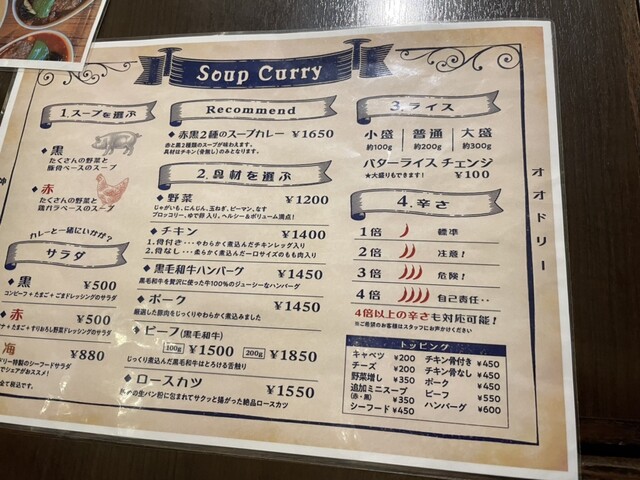 Soup Curry
1.スープを選ぶ
黒
たくさんの野菜と
豚骨ベースのスープ
赤
たくさんの野菜と
鶏ガラベースのスープ
カレーと一緒にいかが?
サラダ
黒 ¥500
コンビーフ+たまご+ごまドレッシングのサラダ
赤 ¥500
+たまご+すりおろし野菜ドレッシング
海 ¥880
ドリー特製のシーフードサラダ
でシェアがおススメ!
全て税込です。
Recommend
赤黒2種のスープカレー ¥1650
赤と黒2種類のスープが味わえます。
具材はチキン(骨無し)のみとなります。
2.具材を選ぶ
野菜 ¥1200
じゃがいも、にんじん、玉ねぎ、ピーマン、なす
ブロッコリー、ゆで卵入り、ヘルシー&ボリューム満点!
チキン ¥1400
1.骨付き・・・やわらかく煮込んだチキンレッグ入り
2.骨なし・・・柔らかく煮込んだ一口サイズのもも肉入り
黒毛和牛ハンバーグ ¥1450
黒毛和牛を贅沢に使った牛100%のジューシーなハンバーグ
ポーク ¥1450
厳選した豚肉をじっくりやわらかく煮込みました
ビーフ(黒毛和牛)
100g ¥1500 200g ¥1850
じっくり煮込んだ黒毛和牛はとろける舌触り
ロースカツ ¥1550
の生パン粉に包まれてサクッと揚がった絶品ロースカツ
3.ライス
小盛 普通 大盛
約100g 約200g 約300g
バターライス チェンジ
★大盛りもできます! ¥100
4.辛さ
1倍 標準
2倍 注意!
3倍 危険!
4倍 自己責任・・
4倍以上の辛さも対応可能!
※ご希望のお客様はスタッフにお声かけください
トッピング
キャベツ ¥200
チーズ ¥200
野菜増し ¥350
追加ミニスープ
(赤・黒) ¥350
シーフード ¥450
チキン骨付き ¥450
チキン骨なし ¥450
ポーク ¥450
ビーフ ¥550
ハンバーグ ¥600
オオドリー